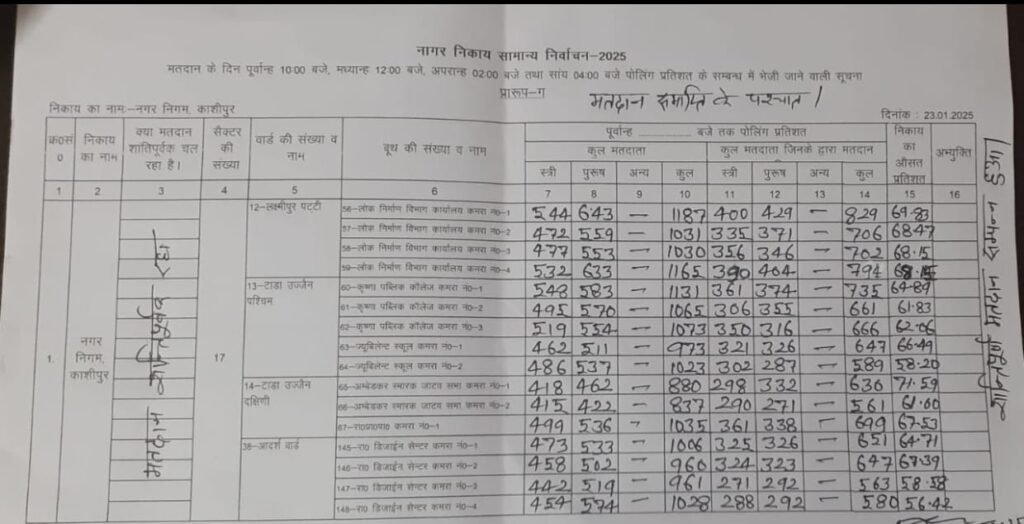 नागर निकाय सामान्य निर्वाचन-2025
मतदान के दिन पूर्वान्ह 10:00 बजे, मध्यान्ह 12:00 बजे, अपरान्ह 02:00 बजे तथा सांय 04:00 बजे पोलिंग प्रतिशत के सम्बन्ध में भेजी जाने वाली सूचना
प्रारूप-ग मतदान समाप्ति के पश्चात।
निकाय का नाम:-नगर निगम, काशीपुर
दिनांक : 23.01.2025
क0सं0 निकाय का नाम क्या मतदान शांतिपूर्वक चल रहा है। सैक्टर की संख्या वार्ड की संख्या व नाम बूथ की संख्या व नाम पूर्वान्ह .................... बजे तक पोलिंग प्रतिशत निकाय का औसत प्रतिशत अभ्युक्ति
कुल मतदाता कुल मतदाता जिनके द्वारा मतदान
स्त्री पुरूष अन्य कुल स्त्री पुरूष अन्य कुल
1 2 3 4 5 6 7 8 9 10 11 12 13 14 15 16
1. नगर निगम, काशीपुर मतदान शान्तिपूर्वक रहा 17
12-लक्ष्मीपुर पट्टी 56-लोक निर्माण विभाग कार्यालय कमरा नं0-1 544 643 - 1187 400 429 - 829 69.83
57-लोक निर्माण विभाग कार्यालय कमरा नं0-2 472 559 - 1031 335 371 - 706 68.47
58-लोक निर्माण विभाग कार्यालय कमरा नं0-3 477 553 - 1030 356 346 - 702 68.15
59-लोक निर्माण विभाग कार्यालय कमरा नं0-4 532 633 - 1165 390 404 - 794 68.15
13-टाडा उज्जैन पश्चिम 60-कृष्णा पब्लिक कॉलेज कमरा नं0-1 548 583 - 1131 361 374 - 735 64.89
61-कृष्णा पब्लिक कॉलेज कमरा नं0-2 495 570 - 1065 306 355 - 661 61.83
62-कृष्णा पब्लिक कॉलेज कमरा नं0-3 519 554 - 1073 350 316 - 666 62.06
63-ज्यूबिलेन्ट स्कूल कमरा नं0-1 462 511 - 973 321 326 - 647 66.49
64-ज्यूबिलेन्ट स्कूल कमरा नं0-2 486 537 - 1023 302 287 - 589 58.20
14-टाडा उज्जैन दक्षिणी 65-अम्बेडकर स्मारक जाटव सभा कमरा नं0-1 418 462 - 880 298 332 - 630 71.59
66-अम्बेडकर स्मारक जाटव सभा कमरा नं0-2 415 422 - 837 290 271 - 561 61.00
67-रा0प्रा0पा0 कमरा नं0-1 499 536 - 1035 361 338 - 699 67.53
38-आदर्श वार्ड 145-रा0 डिजाईन सेन्टर कमरा नं0-1 473 533 - 1006 325 326 - 651 64.71
146-रा0 डिजाईन सेन्टर कमरा नं0-2 458 502 - 960 324 323 - 647 67.39
147-रा0 डिजाईन सेन्टर कमरा नं0-3 442 519 - 961 271 292 - 563 58.58
148-रा0 डिजाईन सेन्टर कमरा नं0-4 454 574 - 1028 288 292 - 580 56.42
शान्तिपूर्ण मतदान सम्पन्न हुआ।